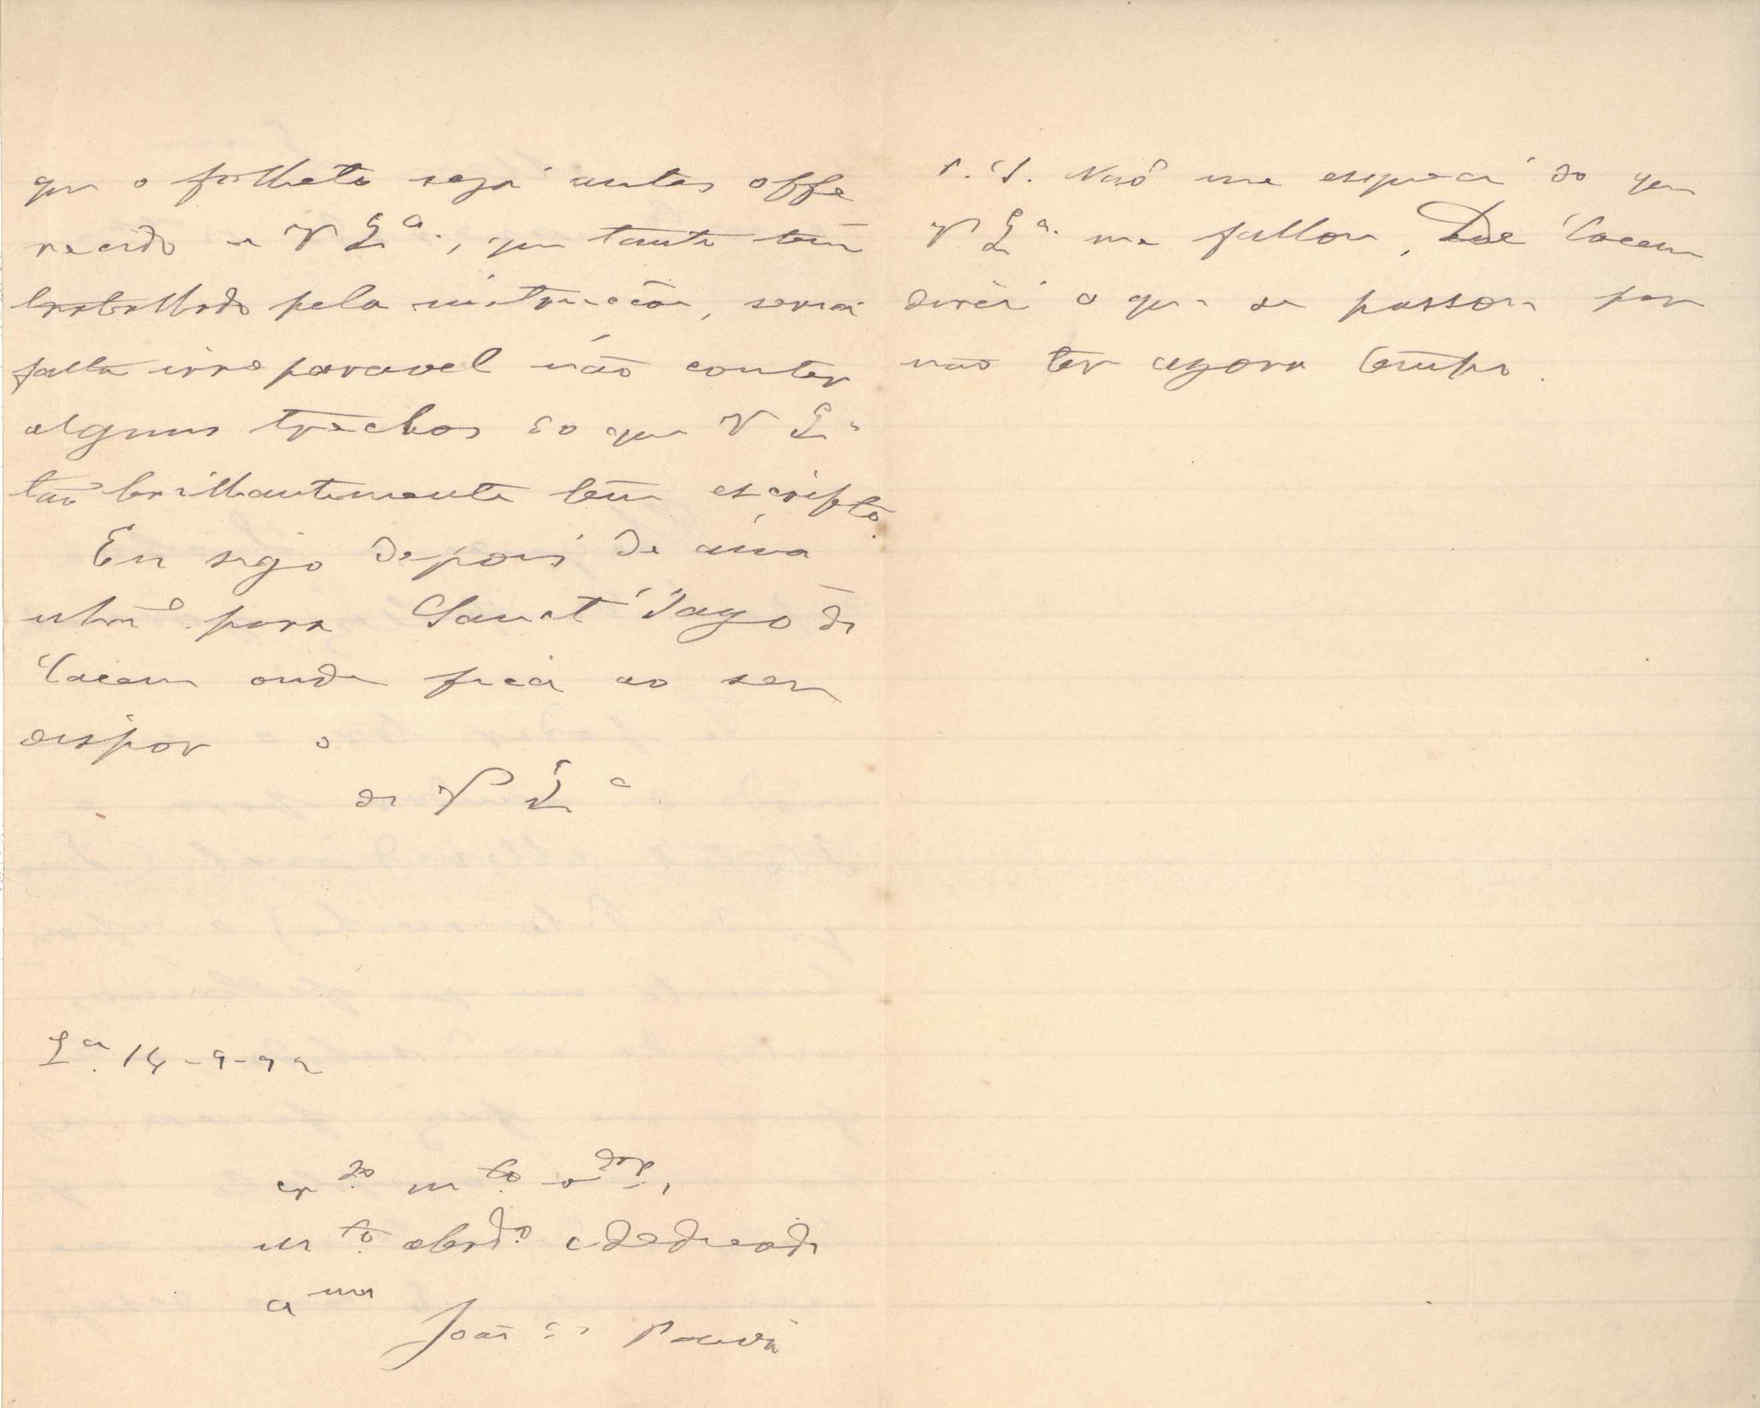 que o folheto seja antes offe
recido a V Eª., que tanto tem
trabalhado pela instrucção, seria
falta irreparavel não conter
alguns trechos do que V Eª
tão brilhantemente tem escripto.
Eu sigo depois de ama
nhã para Sanct Iago de
Cacem onde fica ao seu
dispor o
de V Eª
Lª 14-9-92
crdo mto ador,
mto obrdo e dedicado
amo
João
P.S. Não me esqueci do que
V Eª. me fallou. De Cacem
direi o que se passou por
não ter agora tempo.